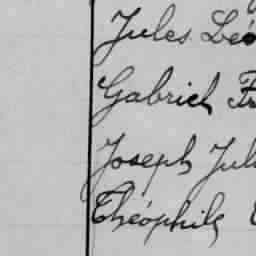 Jules Léo
Gabriel Fr
Joseph Jul
Théophile